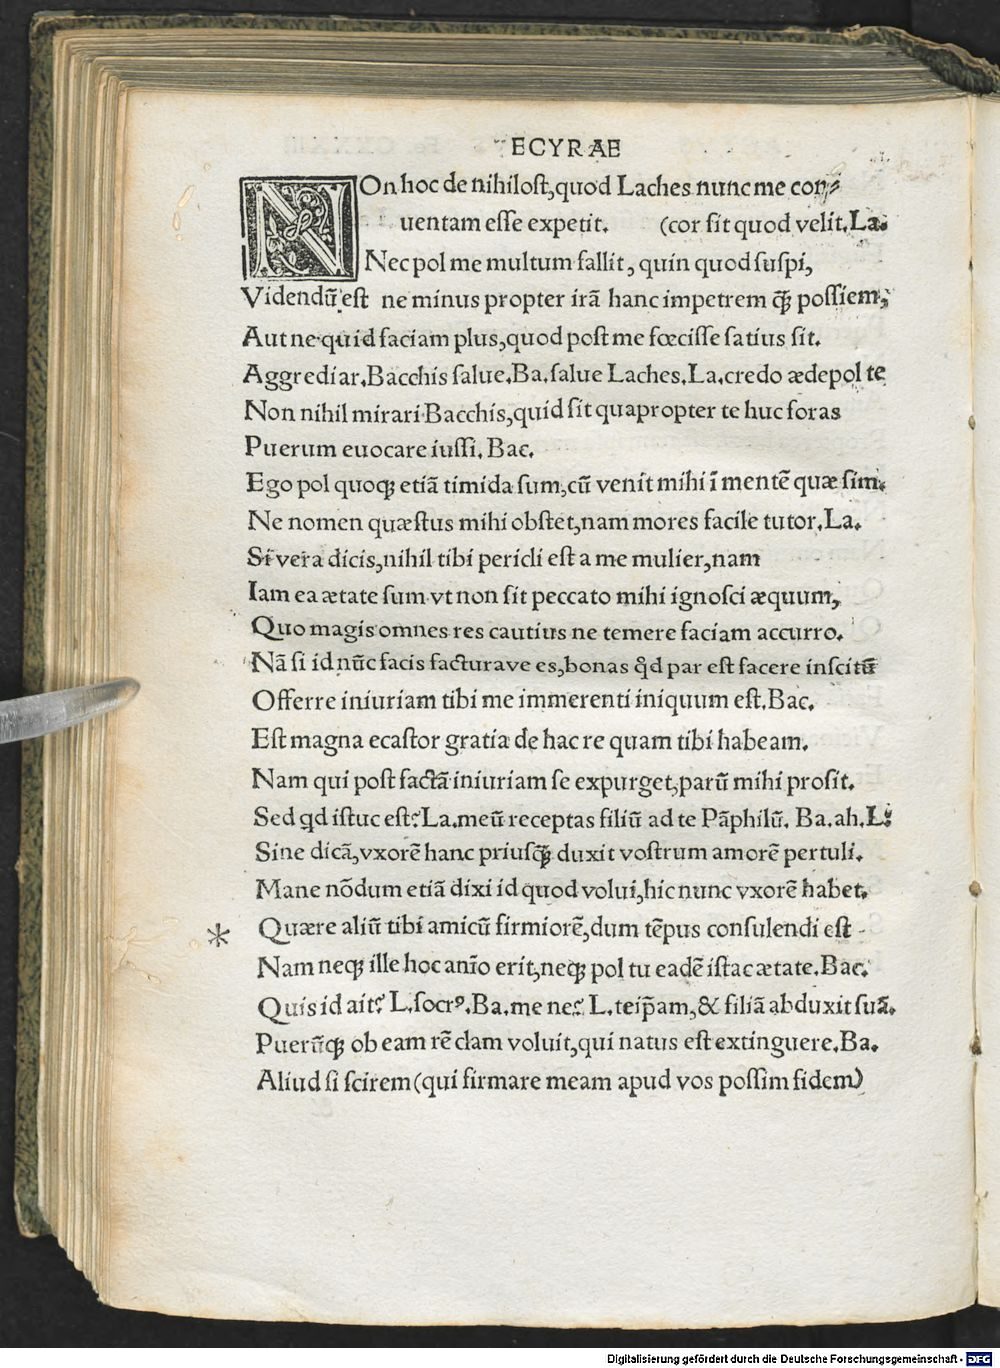 ECYRAE
NOn hoc de nihilost, quod Laches nunc me con⸗
uentam esse expetit. (cor sit quod velit. La.
Nec pol me multum fallit, quin quod suspi,
Videndũ est ne minus propter irã hanc impetrem q̃ꝫ possiem,
Aut ne quid faciam plus, quod post me fœcisse satius sit.
Aggrediar. Bacchis salue. Ba. salue Laches. La. credo ædepol te
Non nihil mirari Bacchis, quid sit quapropter te huc foras
Puerum euocare iussi. Bac.
Ego pol quoqꝫ etiã timida sum, cũ venit mihi ĩ mentẽ quæ sim.
Ne nomen quæstus mihi obstet, nam mores facile tutor. La.
Si vera dicis, nihil tibi pericli est a me mulier, nam
Iam ea ætate sum vt non sit peccato mihi ignosci æquum,
Quo magis omnes res cautius ne temere faciam accurro.
Nã si id nũc facis facturave es, bonas qd par est facere inscitũ
Offerre iniuriam tibi me immerenti iniquum est. Bac.
Est magna ecastor gratia de hac re quam tibi habeam.
Nam qui post factã iniuriam se expurget, parũ mihi prosit.
Sed qd istuc est? La. meũ receptas filiũ ad te Pãphilũ. Ba. ah. L.
Sine dicã, vxorẽ hanc priusq̃ꝫ duxit vostrum amorẽ pertuli.
Mane nõdum etiã dixi id quod volui, hic nunc vxorẽ habet.
* Quære aliũ tibi amicũ firmiorẽ, dum tẽpus consulendi est
Nam neqꝫ ille hoc anĩo erit, neqꝫ pol tu eadẽ istac ætate. Bac.
Quis id ait? L. socrꝰ. Ba. me ne? L. teip̃am, & filiã abduxit suã.
Puerũqꝫ ob eam rẽ clam voluit, qui natus est extinguere. Ba.
Aliud si scirem (qui firmare meam apud vos possim fidem)
Digitalisierung gefördert durch die Deutsche Forschungsgemeinschaft - DFG